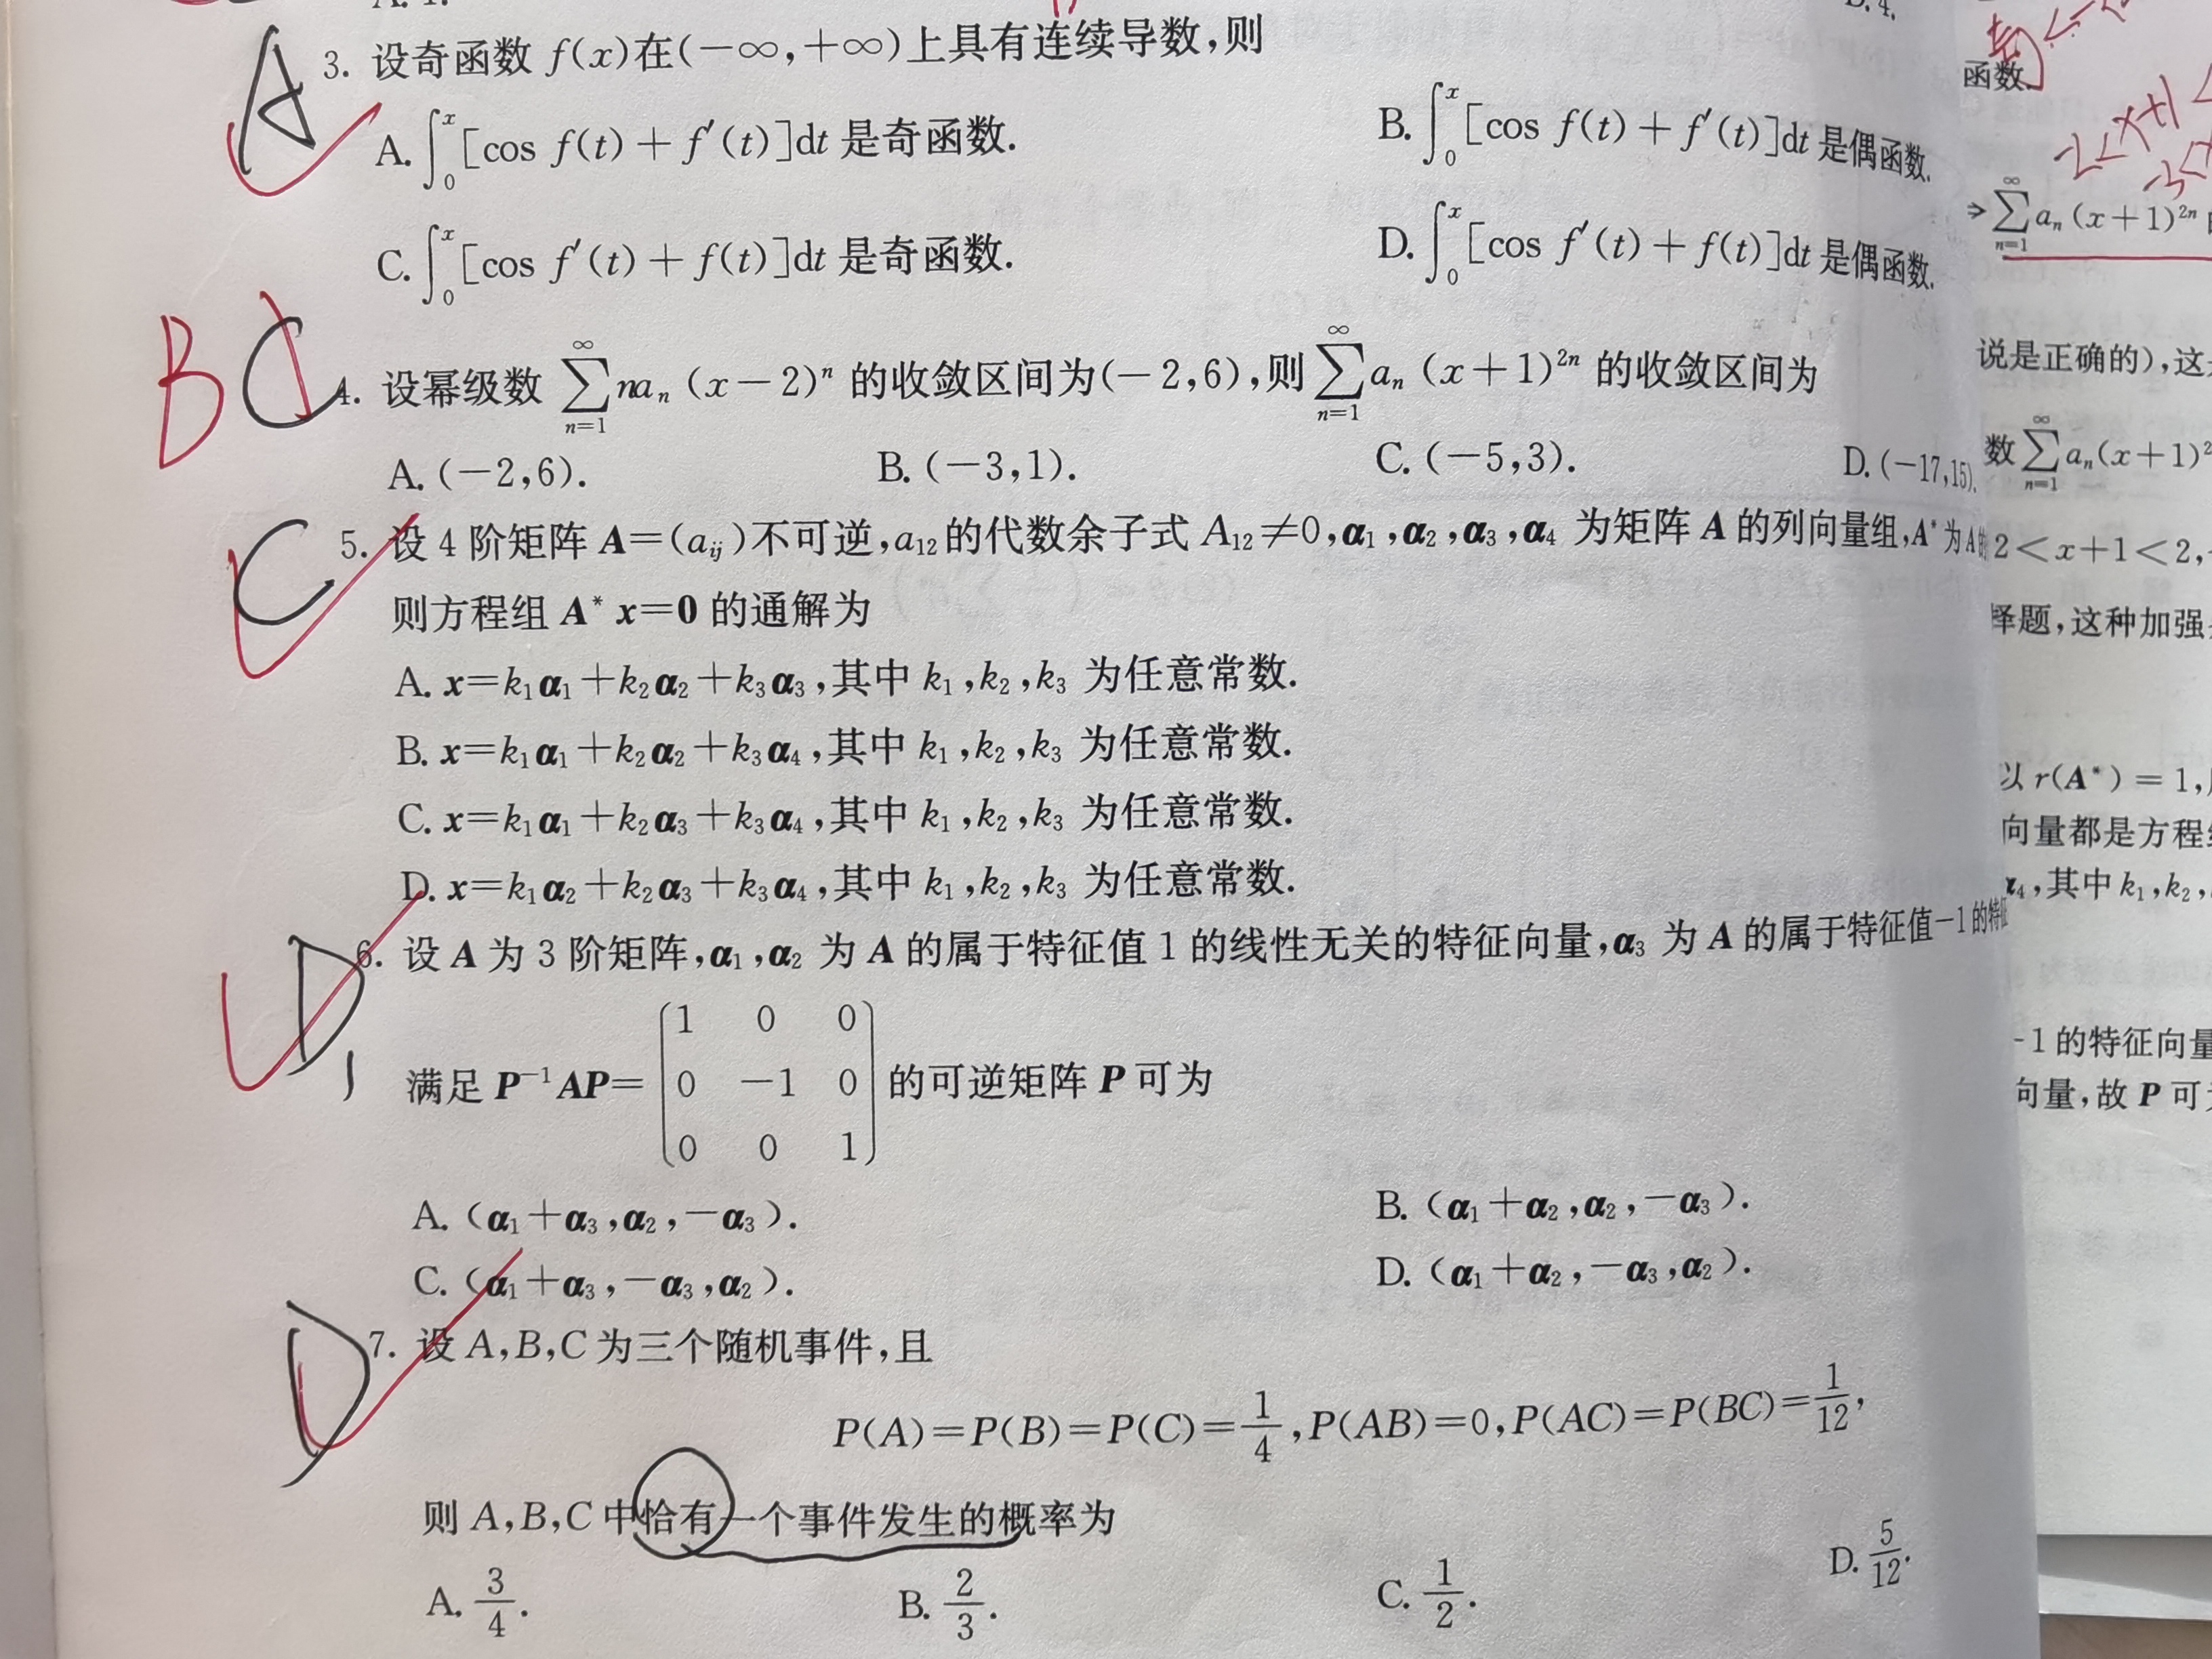 A. 1.
D. 4.
A
3. 设奇函数 f(x)在(-∞,+∞)上具有连续导数,则
A. ∫₀ˣ[cos f(t)+f′(t)]dt 是奇函数.
B. ∫₀ˣ[cos f(t)+f′(t)]dt 是偶函数.
C. ∫₀ˣ[cos f′(t)+f(t)]dt 是奇函数.
D. ∫₀ˣ[cos f′(t)+f(t)]dt 是偶函数.
B C
4. 设幂级数 ∑_{n=1}^{∞} naₙ(x-2)ⁿ 的收敛区间为(-2,6),则 ∑_{n=1}^{∞} aₙ(x+1)²ⁿ 的收敛区间为
A. (-2,6).
B. (-3,1).
C. (-5,3).
D. (-17,15).
C
5. 设 4 阶矩阵 A=(a_{ij})不可逆,a₁₂的代数余子式 A₁₂≠0,α₁,α₂,α₃,α₄ 为矩阵 A 的列向量组,A* 为A的
则方程组 A* x=0 的通解为
A. x=k₁α₁+k₂α₂+k₃α₃,其中 k₁,k₂,k₃ 为任意常数.
B. x=k₁α₁+k₂α₂+k₃α₄,其中 k₁,k₂,k₃ 为任意常数.
C. x=k₁α₁+k₂α₃+k₃α₄,其中 k₁,k₂,k₃ 为任意常数.
D. x=k₁α₂+k₂α₃+k₃α₄,其中 k₁,k₂,k₃ 为任意常数.
D
6. 设 A 为 3 阶矩阵,α₁,α₂ 为 A 的属于特征值 1 的线性无关的特征向量,α₃ 为 A 的属于特征值-1的特征
1 0 0
满足 P⁻¹AP= 0 -1 0 的可逆矩阵 P 可为
0 0 1
A. (α₁+α₃,α₂,-α₃).
B. (α₁+α₂,α₂,-α₃).
C. (α₁+α₃,-α₃,α₂).
D. (α₁+α₂,-α₃,α₂).
D
7. 设 A,B,C 为三个随机事件,且
P(A)=P(B)=P(C)=1/4,P(AB)=0,P(AC)=P(BC)=1/12,
则 A,B,C 中恰有一个事件发生的概率为
A. 3/4.
B. 2/3.
C. 1/2.
D. 5/12.
函数.
2<x+1<
⇒∑_{n=1}^{∞} aₙ(x+1)²ⁿ
说是正确的),这
数 ∑_{n=1}^{∞} aₙ(x+1)²
2<x+1<2,
择题,这种加强
以 r(A*)=1,
向量都是方程
α₄,其中 k₁,k₂,
-1 的特征向量
向量,故 P 可